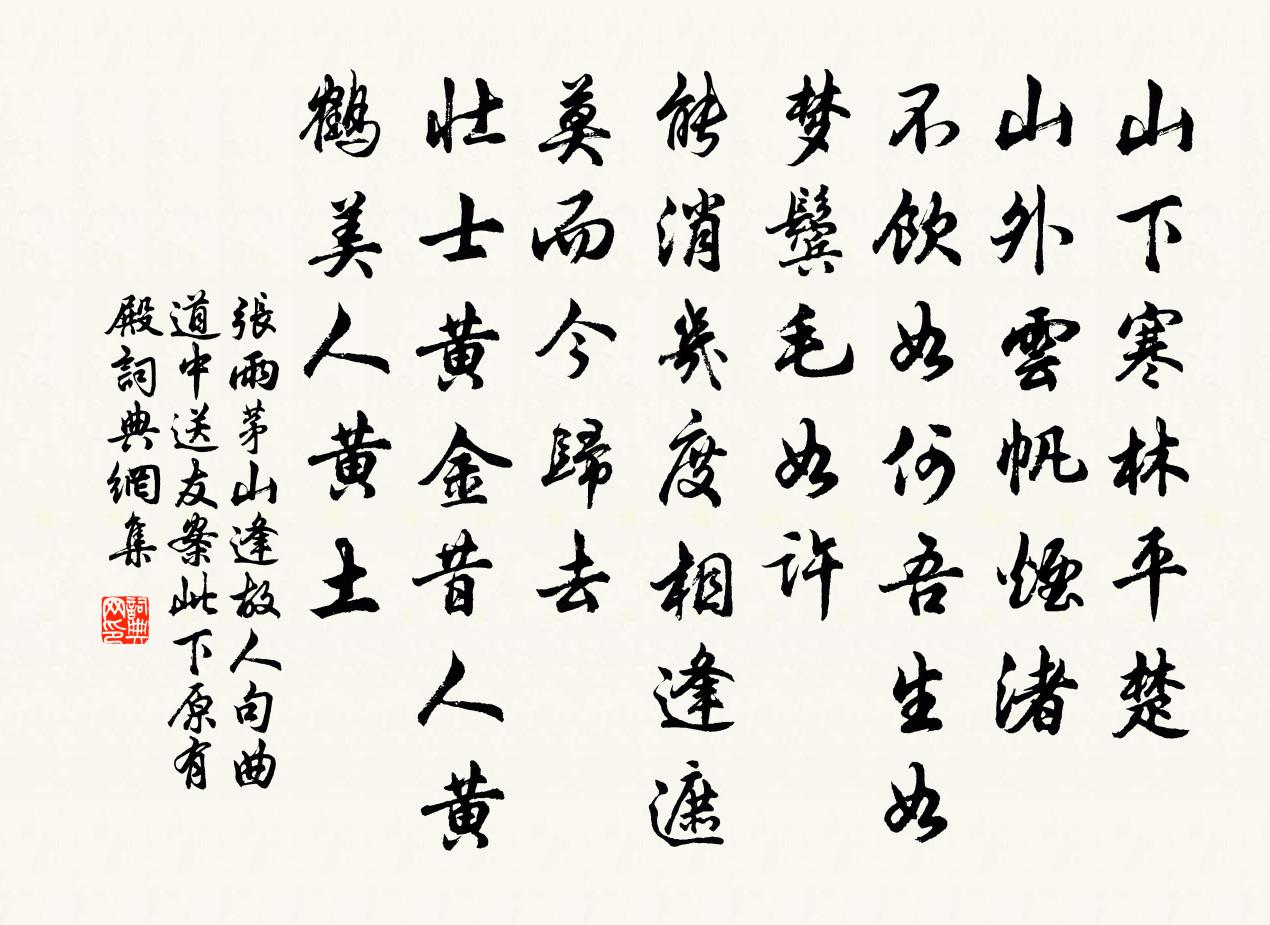 山下寒林平楚
山外雲帆煙渚
不飲如何吾生如
梦鬓毛如许
能消幾度相逢遮
莫而今歸去
壮士黄金昔人黄
鶴美人黄土
張雨茅山逢故人句曲
道中送友案此下原有
殿詞典網集
詞典网印